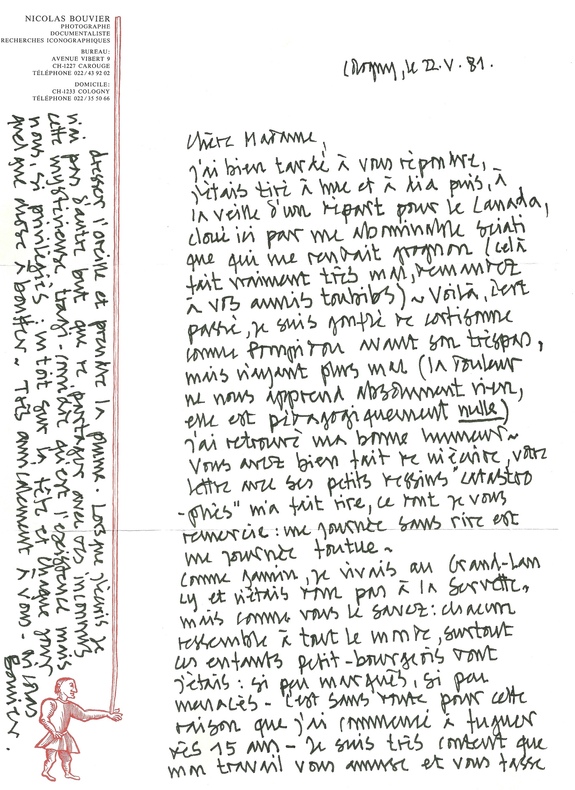 NICOLAS BOUVIER
PHOTOGRAPHE
DOCUMENTALISTE
RECHERCHES ICONOGRAPHIQUES
BUREAU:
AVENUE VIBERT 9
CH-1227 CAROUGE
TÉLÉPHONE 022/43 92 02
DOMICILE:
CH-1233 COLOGNY
TÉLÉPHONE 022/35 50 66
Cologny, le 22.V.81.
Chère Madame,
j'ai bien tardé à vous répondre,
j'étais tiré à hue et à dia puis, à
la veille d'un départ pour le Canada,
cloué ici par une abominable sciati
que qui me rendait grognon (celà
fait vraiment très mal, demandez
à vos amis toubibs) ~ Voilà, c'est
passé, je suis gonflé de cortisone
comme Pompidou avant son trépas,
mais n'ayant plus mal (la douleur
ne nous apprend absolument rien,
elle est pédagogiquement nulle)
j'ai retrouvé ma bonne humeur ~
Vous avez bien fait de m'écrire, votre
lettre avec ses petits dessins "catastro
-phés" m'a fait rire, ce dont je vous
remercie : une journée sans rire est
une journée foutue ~
Comme gamin, je vivais au Grand-Lan
cy et n'étais donc pas à la Servette,
mais comme vous le savez : chacun
ressemble à tout le monde, surtout
ces enfants petit-bourgeois dont
j'étais : si peu marqués, si peu
menacés - C'est sans doute pour cette
raison que j'ai commencé à fuguer
dès 15 ans - Je suis très content que
mon travail vous amuse et vous fasse
dresser l'oreille et prendre la plume. Lorsque j'écris je
n'ai pas d'autre but que de partager avec des inconnus
cette mystérieuse tragi-comédie qu'est l'existence mais
nous, si privilégiés : un toit sur la tête et chaque jour
quelque chose à bouffer ~ Très amicalement à vous - Nicolas
Bouvier.